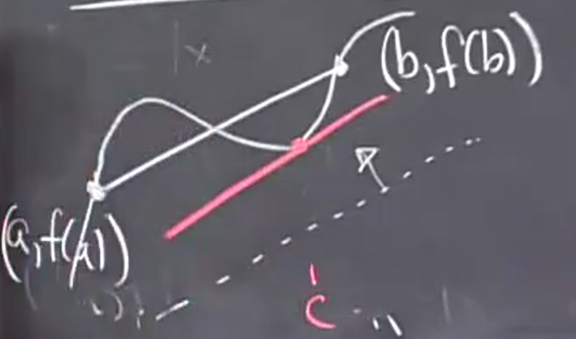 (b, f(b))
(a, f(a))
c